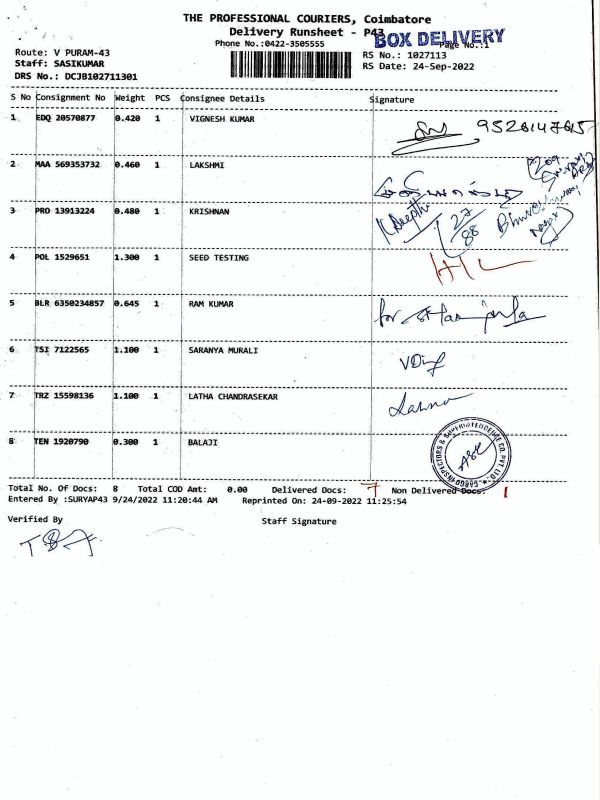 THE PROFESSIONAL COURIERS, Coimbatore
Delivery Runsheet - P43
BOX DELIVERY
Phone No.:0422-3505555
Page No.:1
Route: V PURAM-43
RS No.: 1027113
Staff: SASIKUMAR
RS Date: 24-Sep-2022
DRS No.: DCJB102711301
S No Consignment No Weight PCS Consignee Details Signature
1 EDQ 20570877 0.420 1 VIGNESH KUMAR
2 MAA 569353732 0.460 1 LAKSHMI
3 PRO 13913224 0.480 1 KRISHNAN K Deepthi 27/88
4 POL 1529651 1.300 1 SEED TESTING
5 BLR 6350234857 0.645 1 RAM KUMAR for
6 TSI 7122565 1.100 1 SARANYA MURALI
7 TRZ 15598136 1.100 1 LATHA CHANDRASEKAR
8 TEN 1920790 0.300 1 BALAJI
Total No. Of Docs: 8 Total COD Amt: 0.00 Delivered Docs: 7 Non Delivered Docs: 1
Entered By :SURYAP43 9/24/2022 11:20:44 AM Reprinted On: 24-09-2022 11:25:54
Verified By Staff Signature